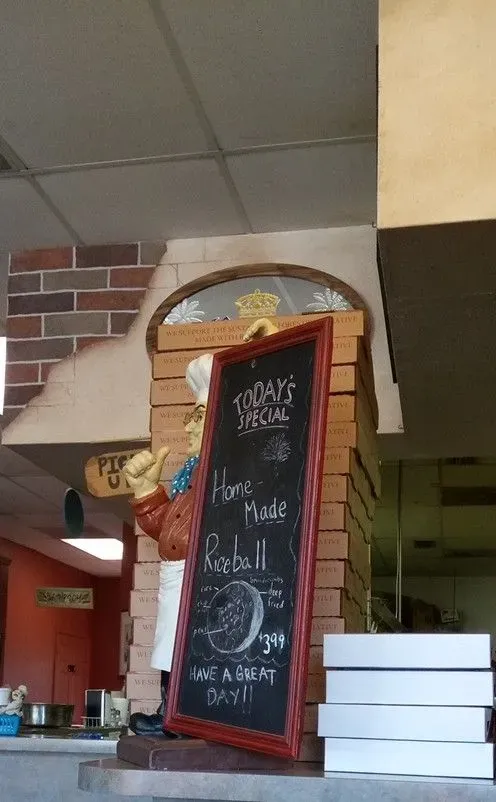 WE SUPPORT THE SUSTAINABLE FORESTRY INITIATIVE
MADE WITH
PICK
U
TODAY'S
SPECIAL
Home-
Made
Riceball
breadcrumbs
deep
fried
$3.99
HAVE A GREAT
DAY!!